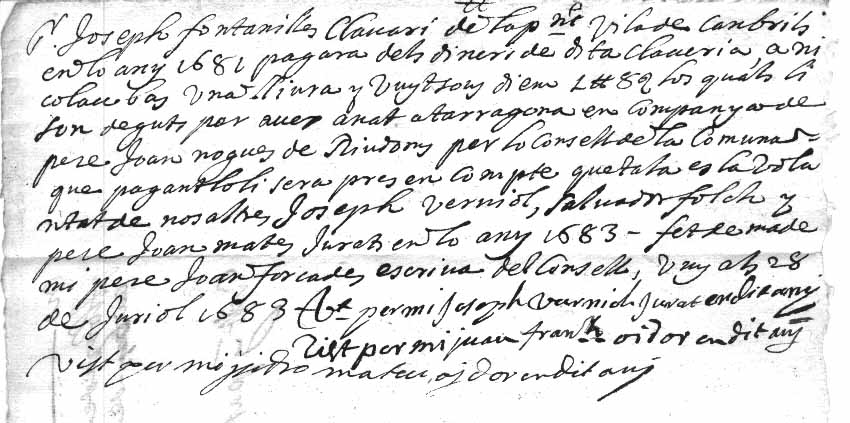 Sr. Joseph fontanilles Clavari de la pnt Vila de Cambrils
en lo any 1681 pagara dels diners de dita Claveria a ni
colau bas Una lliura y Vuyt sous diem 1 ## 8 s los quals li
son deguts per aver anat a tarragona en Companya de
pere Joan nogues de Riudoms per lo Consell de la Comuna
que pagantloli sera pres en Compte que tal es la Volu
ntat de nosaltres Joseph Verniol, Salvador folch y
pere Joan mates Jurats en lo any 1683 - fet de ma de
mi pere Joan forcades escriva del Consell, Vuy als 28
de Juriol 1683 Vt per mi Joseph Varniol Jurat en dit any
Vist per mi juan franch oidor en dit any
Vist per mi ysidro mateu oydor en dit any